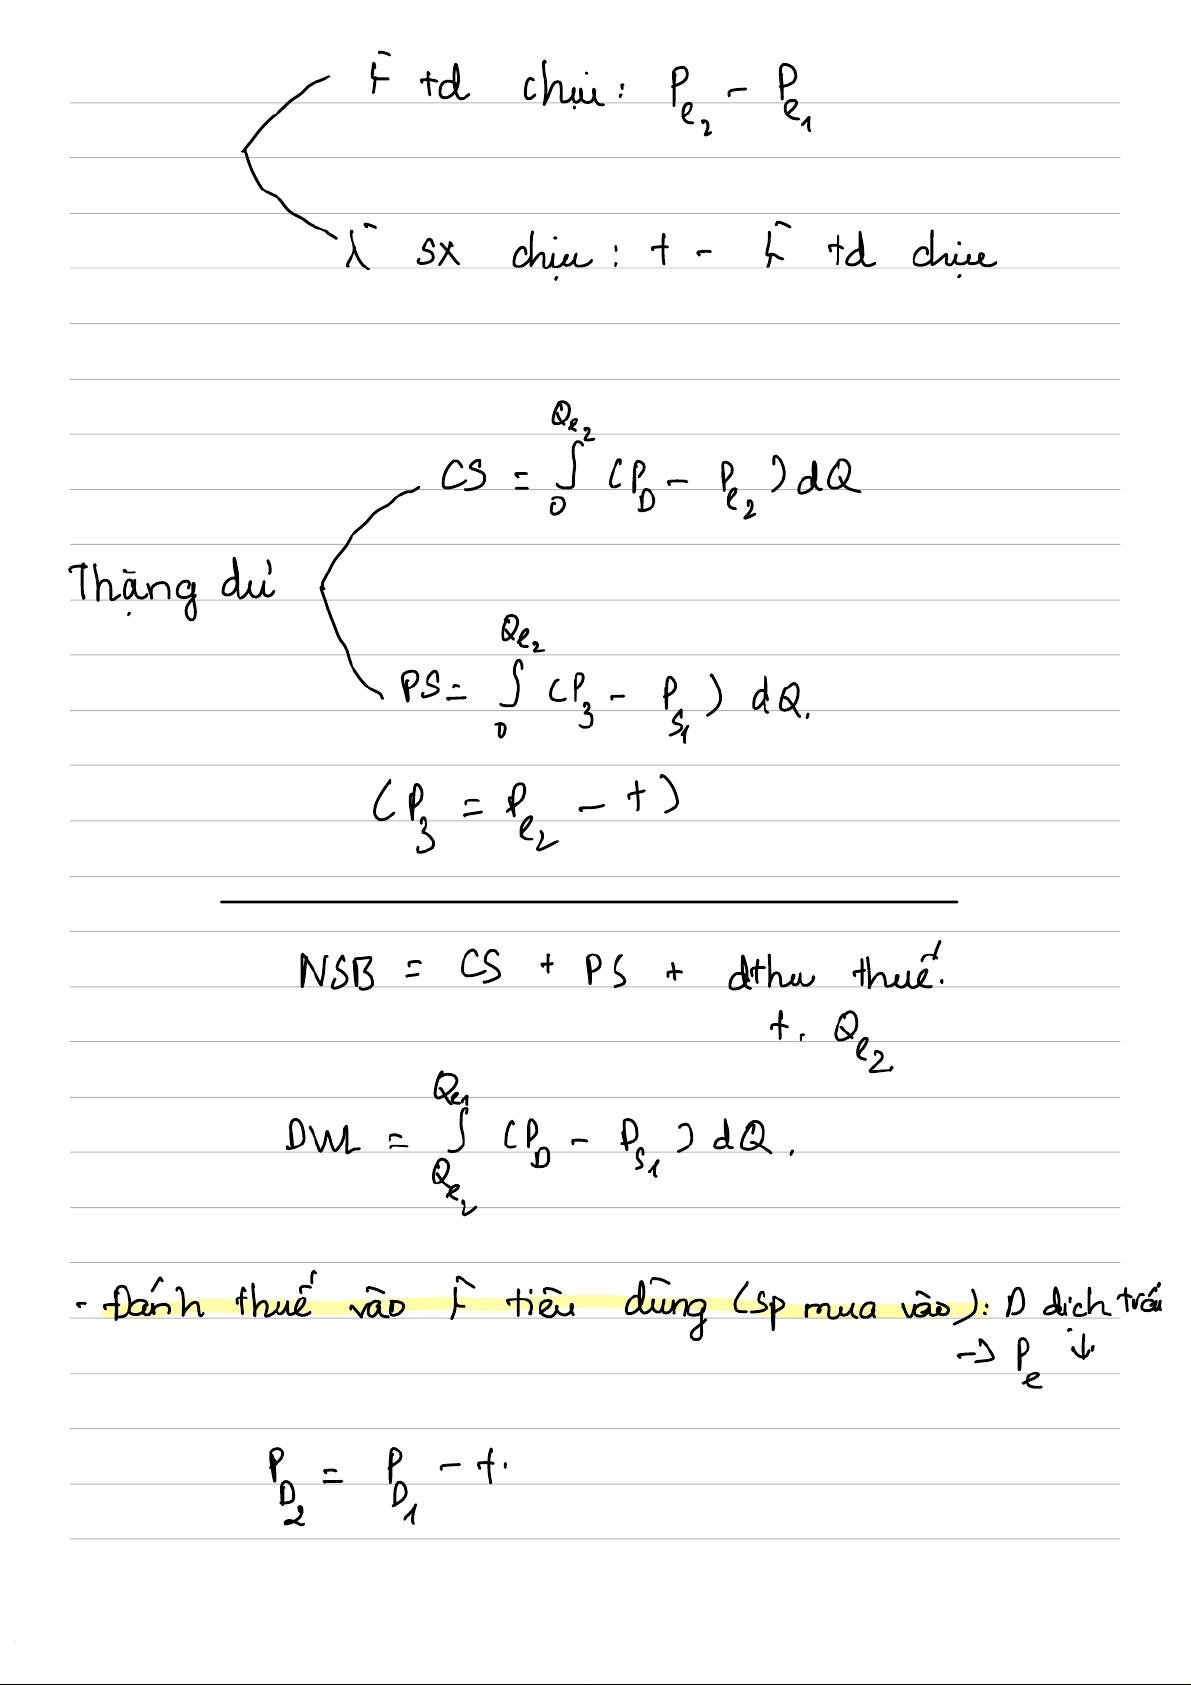 F̀ td chịu: Pe2 - Pe1
F̀ sx chịu: t - F̀ td chịu
CS = ∫0^Qe2 (PD - Pe2) dQ
Thặng dư
PS = ∫0^Qe2 (P3 - PS1) dQ.
(P3 = Pe2 - t)
NSB = CS + PS + dthu thuế.
t. Qe2
DWL = ∫Qe2^Qe1 (PD - PS1) dQ.
- Đánh thuế vào F̀ tiêu dùng (sp mua vào): D dịch trái
-> Pe ↓
PD2 = PD1 - t.